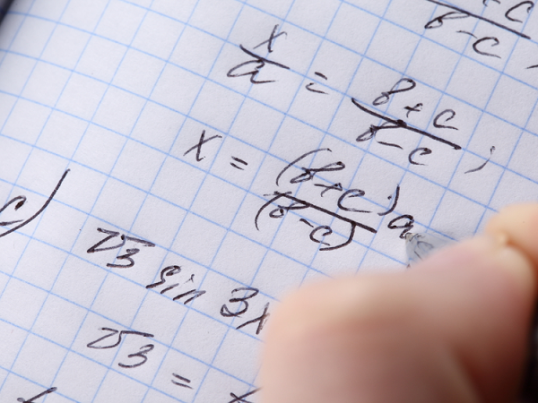 +c
b-c
x/a = b+c/b-c ;
x = (b+c)a/(b-c)
c)
√3 sin 3x
√3 =